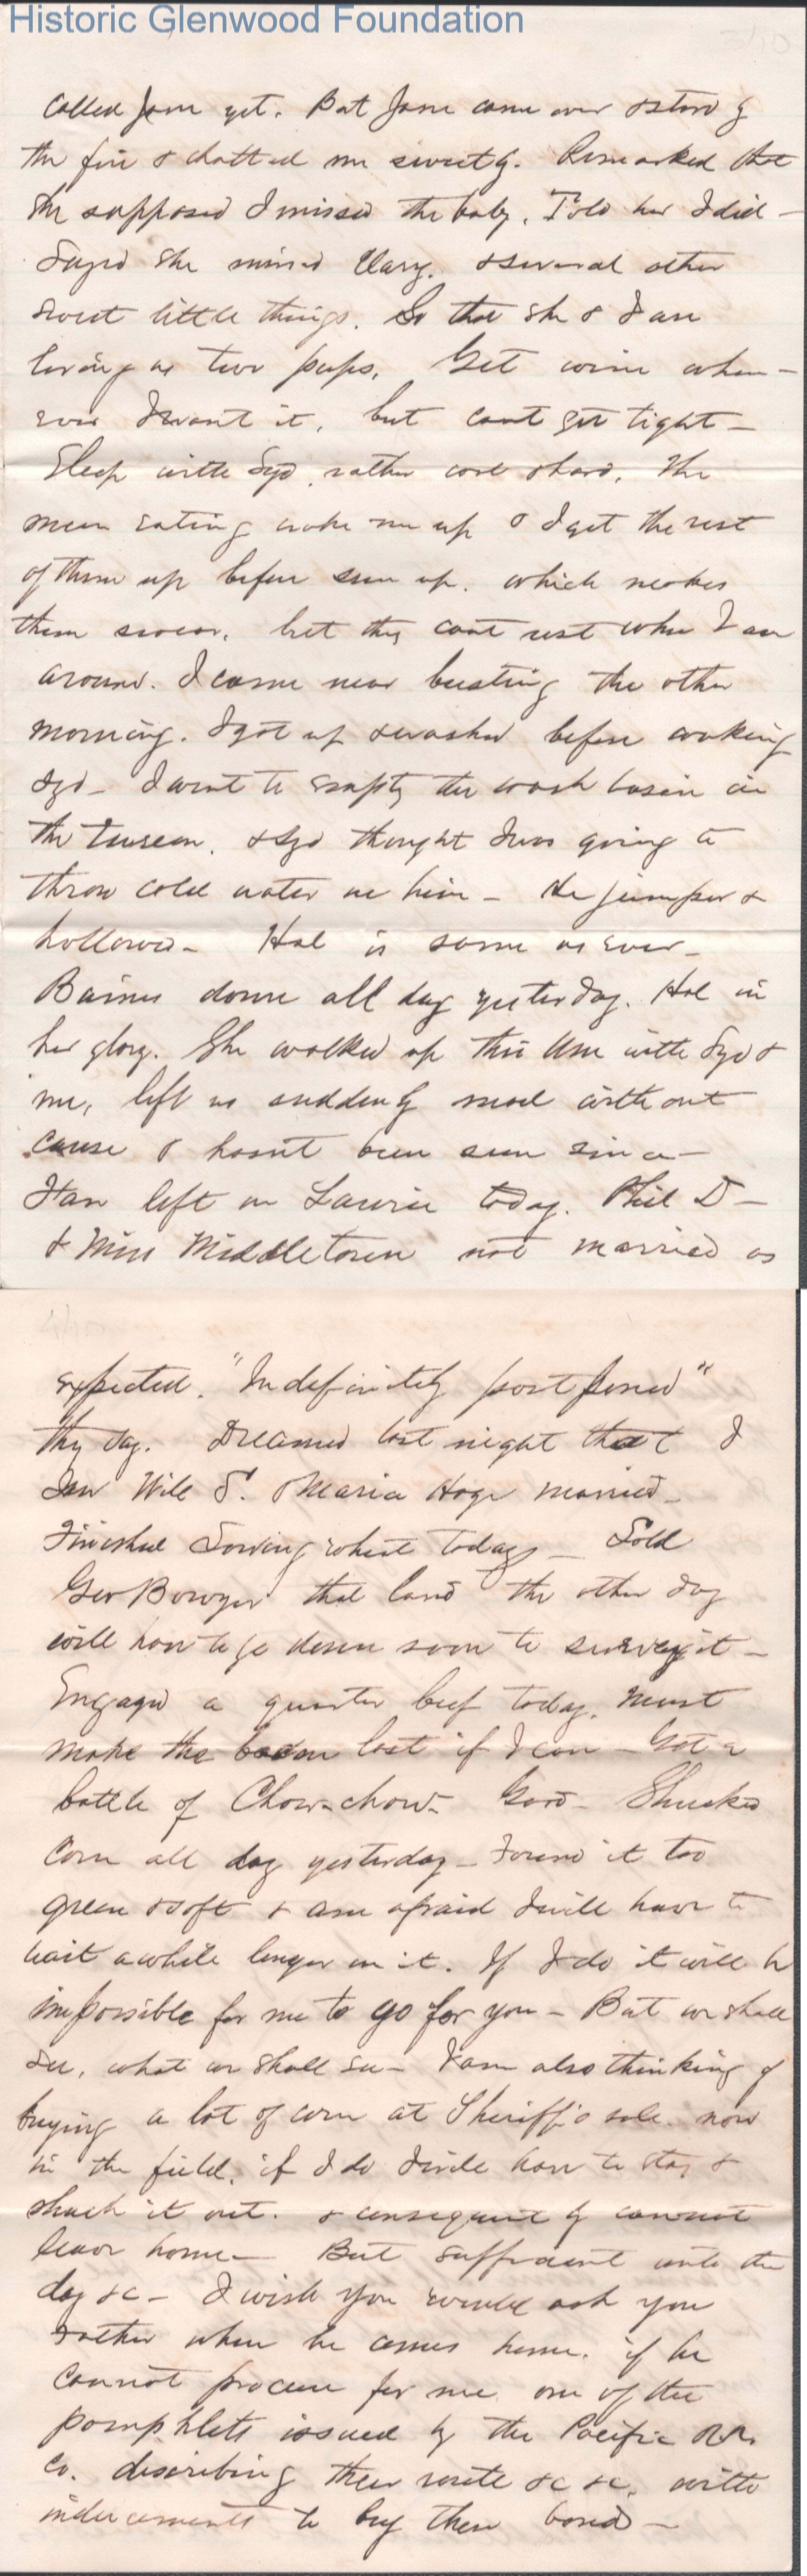 Historic Glenwood Foundation
3/10
Called Jane yet. But Jane came over & stood by
the fire & chatted me sweetly. Remarked that
she supposed I missed the baby. Told her I did –
Syd she missed Mary. & several other
sweet little things. So that she & I are
loving as two pups. Get wine when–
ever I want it, but cant get tight –
Sleep with Syd, rather cold & hard. The
men eating woke me up & I get the rest
of them up before sun up. which makes
them swear. but they cant rest when I am
around. I came near busting the other
morning. I got up & washed before waking
Syd – I went to empty the wash basin in
the & Syd thought I was going to
throw cold water on him – He jumped &
hollowed – Hal is same as ever –
Baines down all day yesterday. Hal in
her glory. She walked up this with Syd &
me, left us suddenly mad without
cause & hasnt been seen since –
left on Laurie today. Phil D –
& Miss Middletown not married as
4/10
expected. "Indefinitely postponed"
they say. Dreamed last night that I
saw Will S. & Maria Hoge married –
Finished Sowing wheat today – Sold
Geo Bowyer that land the other day
will have to go down soon to survey it –
Engaged a quarter beef today. Must
make the bacon last if I can – Got a
bottle of Chow-chow – Good – Shucked
Corn all day yesterday – Found it too
green & soft & am afraid I will have to
wait awhile longer on it. If I do it will be
impossible for me to go for you – But we shall
see, what we shall see – I am also thinking of
buying a lot of corn at Sheriff's sale now
in the field, if I do I will have to stay &
shuck it out. & consequently cannot
leave home – But sufficient unto the
day &c – I wish you would ask you
Father when he comes home. if he
cannot procure for me one of the
pamphlets issued by the Pacific RR.
Co. discribing their route &c &c, with
inducements to buy their bonds –